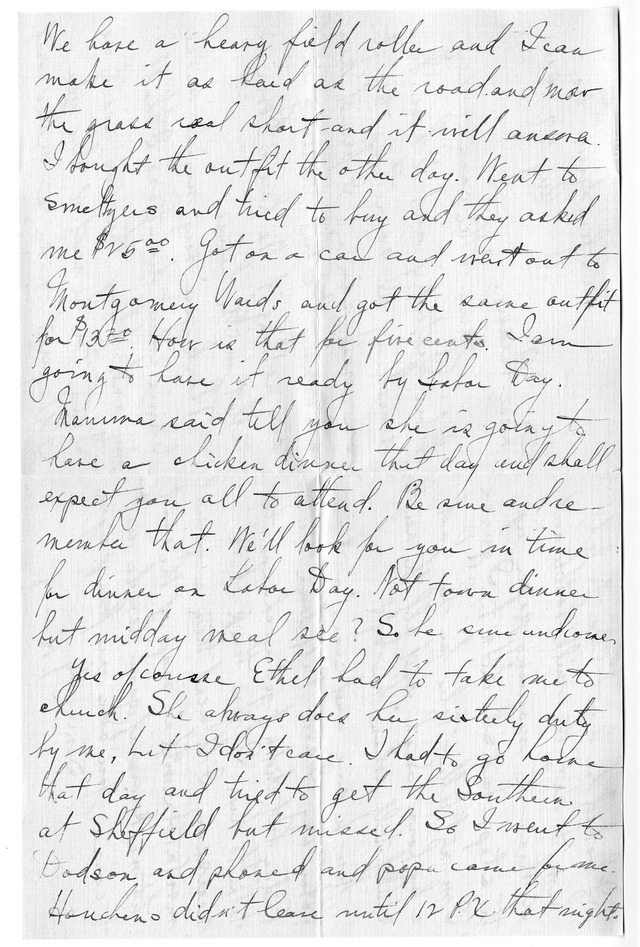 We have a heavy field roller and I can
make it as hard as the road and mow
the grass real short and it will answer.
I bought the outfit the other day. Went to
Smeltzers and tried to buy and they asked
me $2500. Got on a car and went out to
Montgomery Wards and got the same outfit
for $1320. How is that for five cents. I am
going to have it ready by Labor Day.
Mamma said tell you she is going to
have a chicken dinner that day and shall
expect you all to attend. Be sure and re-
member that. We'll look for you in time
for dinner on Labor Day. Not town dinner
but midday meal see? So be sure and come.
Yes of course Ethel had to take me to
church. She always does her sisterly duty
by me, but I don't care. I had to go home
that day and tried to get the Southern
at Sheffield but missed. So I went to
Dodson and phoned and papa came for me.
Houchens didn't leave until 12 P.M. that night.